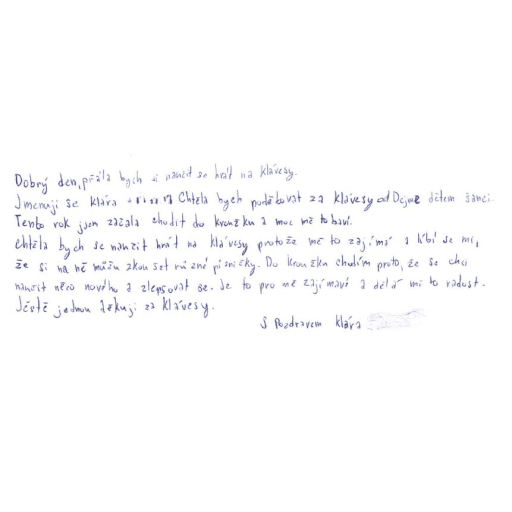 Dobrý den, přála bych si naučit se hrát na klávesy.
Jmenuji se Klára Chtěla bych poděkovat za klávesy od Dejme dětem šanci.
Tento rok jsem začala chodit do kroužku a moc mě to baví.
Chtěla bych se naučit hrát na klávesy protože mě to zajímá a líbí se mi,
že si na ně můžu zkoušet různé písničky. Do kroužku chodím proto, že se chci
naučit něco nového a zlepšovat se. Je to pro mě zajímavé a dělá mi to radost.
Ještě jednou děkuji za klávesy.
S Pozdravem Klára